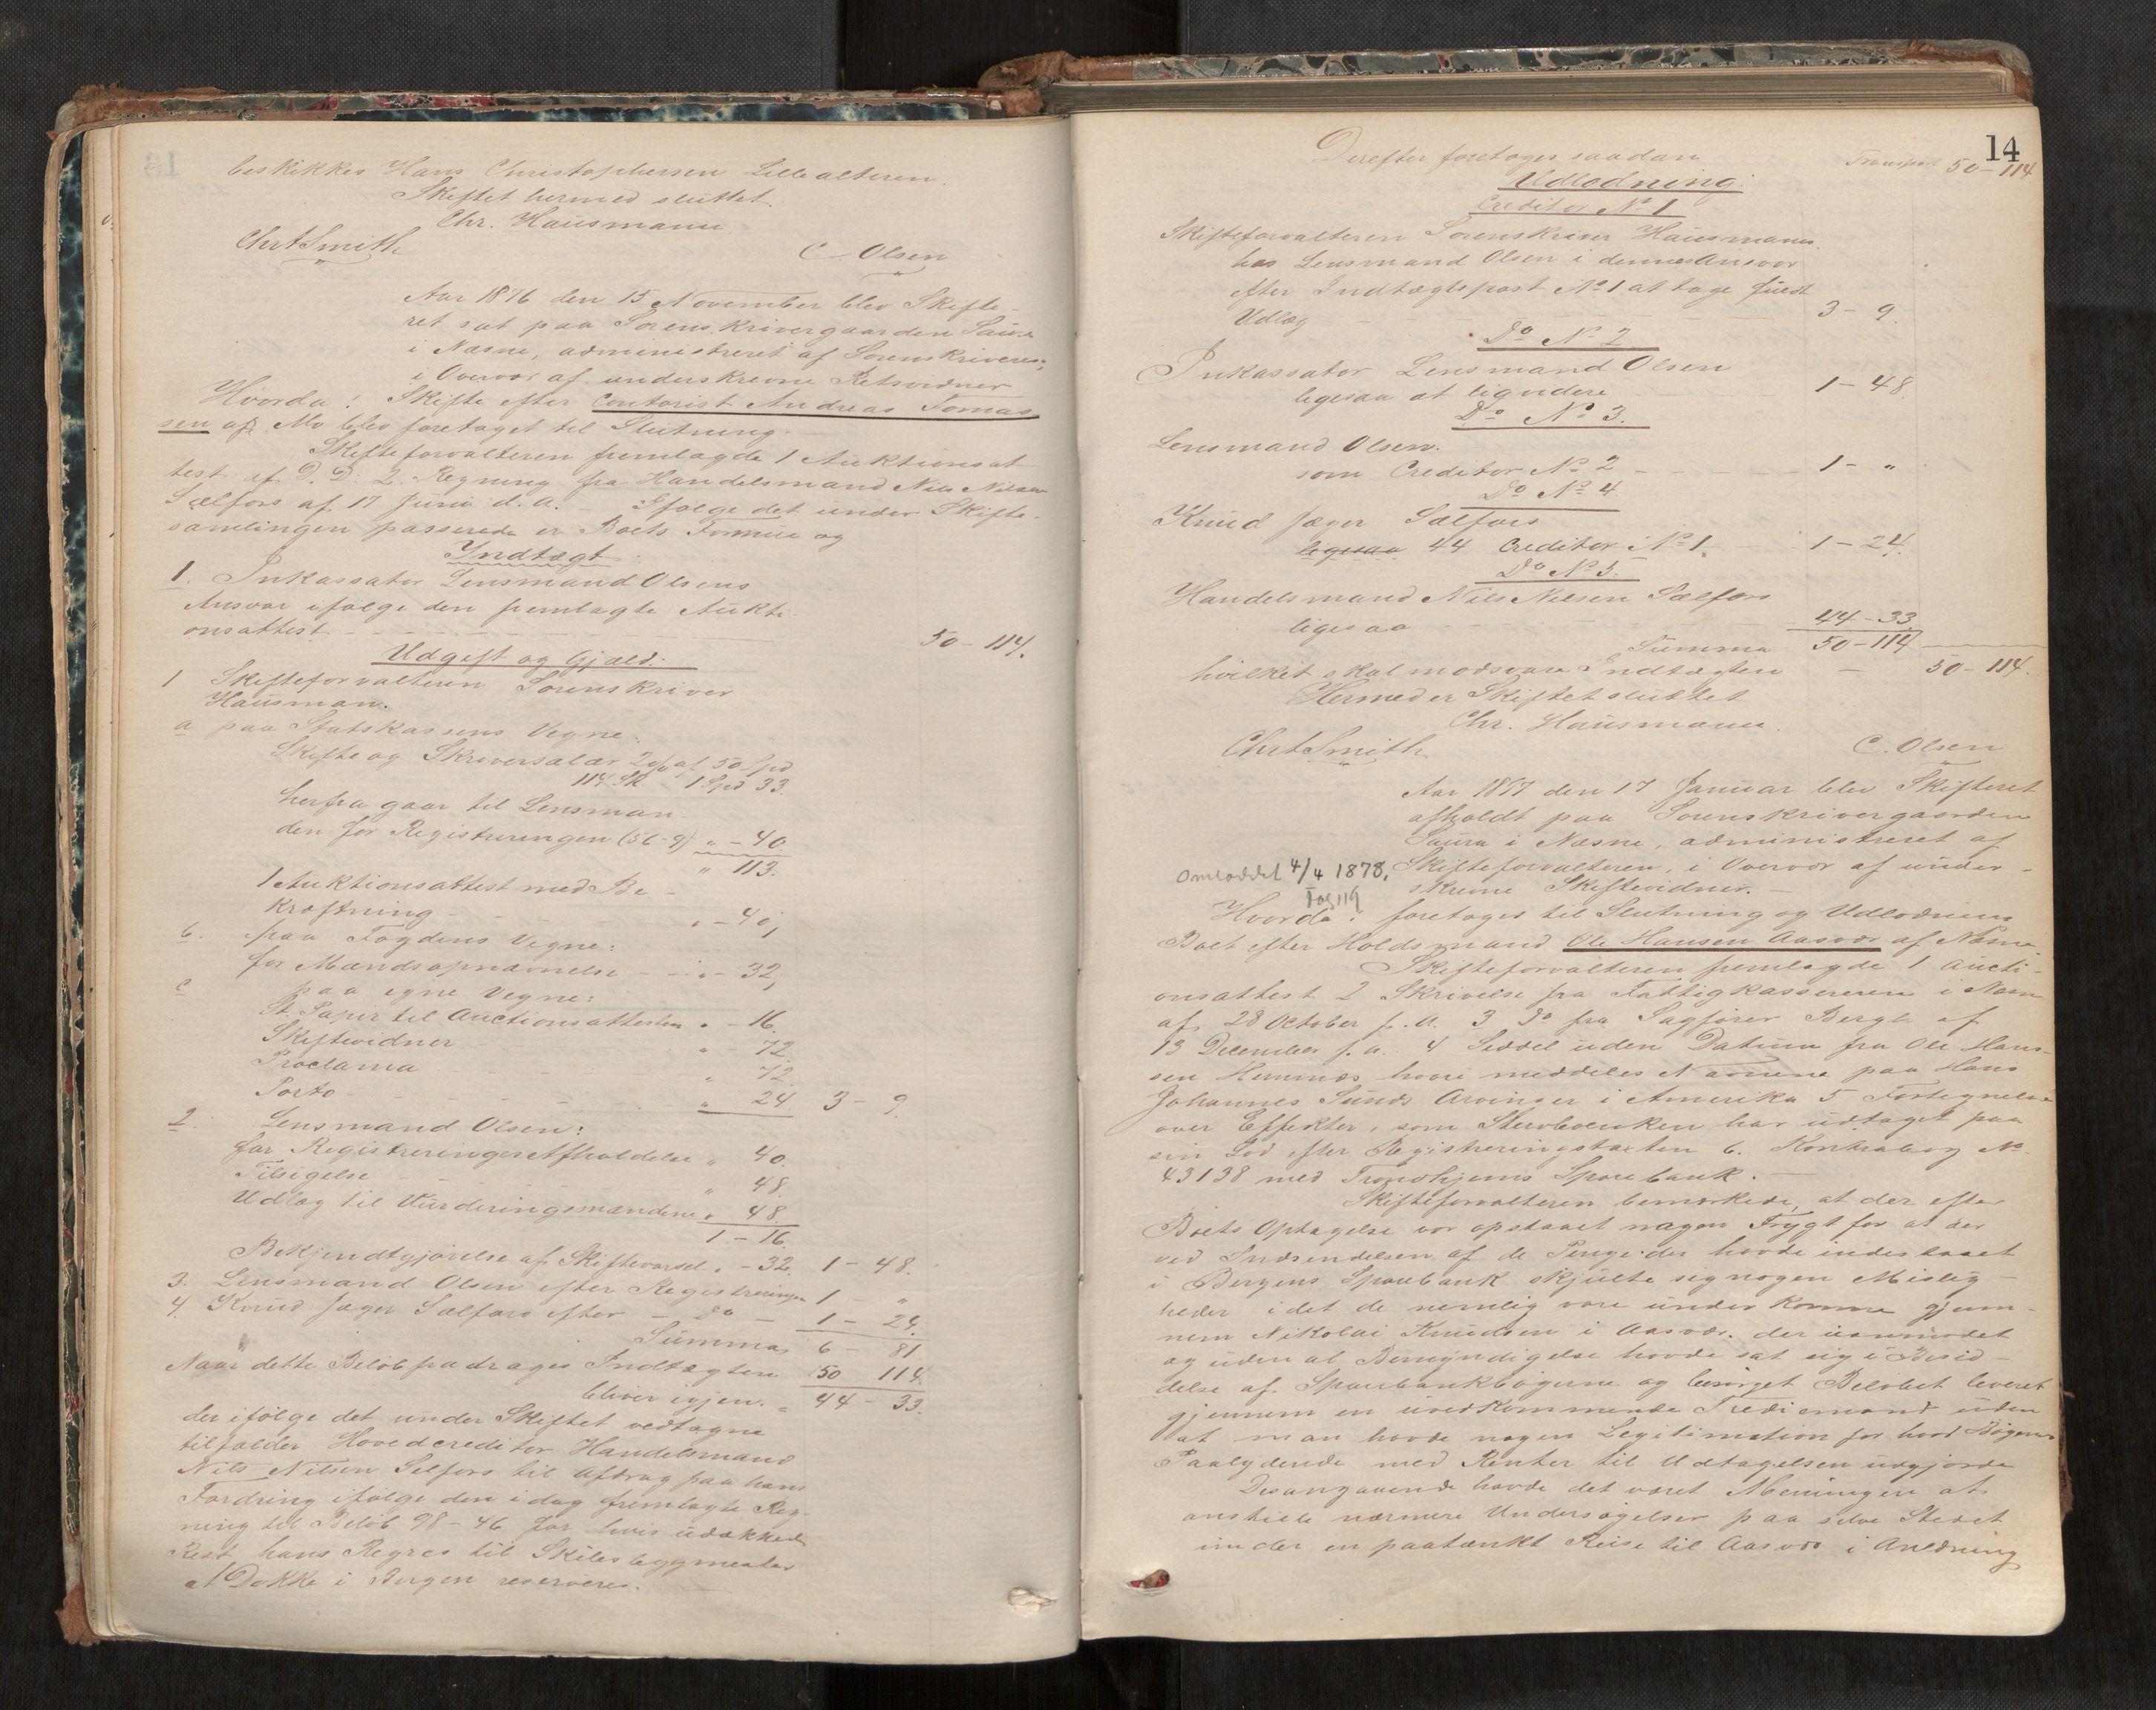 beskikkes Hans Christophersen Lillealteren.
Skiftet hermed sluttet.
Chr. Hausmann
Chr A Smith
C. Olsen
Aar 1876 den 15 November blev Skifte-
ret sat paa Sorenskrivergaarden Saura
i Næsne, administreret af Sorenskriveren,
i Overvær af underskrevne Retsvidner
Hvorda: Skifte efter Contorist Andreas Tomas
sen af Mo blev foretaget til Slutning.
Skifteforvalteren fremlagde 1 Auktionsat
test af D. D. 2 Regning fra Handelsmand Nils Nilsen
Sælfors af 17 Juni d. a. - Ifølge det under Skifte-
samlingen passerede er Boets Formue og
Indtægt
1. Inkassator Lensmand Olsens
Ansvar ifølge den fremlagte Aukti-
onsattest 50 - 114.
Udgift og Gjæld.
1 Skifteforvalteren Sorenskriver
Hausman.
a paa Statskassens Vegne:
Skifte og Skriversalær 2% af 50 Spd
114 Sk 1 Spd 33.
herfra gaar til Lensman
den for Registreringen (56-9) " - 40.
" 113.
1 Auktionsattest med Be-
kræftning " - 40,
b. paa Fogdens Vegne:
for Mændsopnævnelse " - 32,
c paa egne Vegne:
St. Papir til Auctionsattesten " - 16.
Skiftevidner " 72.
Proclama " 72.
Porto " 24 3 - 9.
2. Lensmand Olsen:
for Registreringens Afholdelse " 40.
Tilsigelse " 48.
Udlæg til Vurderingsmændene " 48.
1 - 16.
Bekjendtgjørelse af Skiftevarsel " - 32. 1 - 48.
3. Lensmand Olsen efter Registreringen 1 - "
4. Knud Jæger Sælfors efter - do - 1 - 24.
Summa 6 - 81
Naar dette Beløb fradrages Indtægten 50 114.
bliver igjen. 44 - 33.
der ifølge det under Skiftet vedtagne
tilfalder Hovedcreditor Handelsmand
Nils Nilsen Selfors til Afdrag paa hans
Fordring ifølge den idag fremlagte Reg-
ning til Beløb 98 - 46 for hvis udækkede
Rest hans Regres til
Dokke i Bergen reserveres.
14
Derefter foretages saadan
Transport 50 - 114
Udlodning.
Creditor No 1
Skifteforvalteren Sorenskriver Hausmann
hos Lensmand Olsen i dennes Ansvar
efter Indtægtspost No 1 at tage fuldt
Udlæg 3 - 9.
Do No 2
Inkassator Lensmand Olsen
ligesaa at liqvidere 1 - 48.
Do No 3.
Lensmand Olsen.
som Creditor No 2 1 - "
Do No 4
Knud Jæger Sælfors
ligesaa 44 Creditor No 1. 1 - 24.
Do No 5.
Handelsmand Nils Nilsen Sælfors
ligesaa 44 - 33.
Summa 50 - 114
hvilket skal modsvare Indtægten 50 - 114.
Hermed er Skiftet sluttet
Chr. Hausmann.
Chr A Smith
C. Olsen
Aar 1877 den 17 Januar blev Skifteret
afholdt paa Sorenskrivergaarden
Saura i Næsne, administreret af
Omloddet 4/4 1878, Skifteforvalteren, i Overvær af under-
Fog 119 skrevne Skiftevidner. -
Hvorda: foretages til Slutning og Udlodning
Boet efter Holdsmand Ole Hansen Aasvær af Næsne
Skifteforvalteren fremlagde 1 Aucti-
onsattest 2 Skrivelse fra Fattigkassereren i Næsne
af 28 October f. A. 3 Do fra Sagfører Bergh af
13 December f. a. 4 Seddel uden Datum fra Ole Han-
sen Hemnæs hvori meddeles Navnene paa Hans
Johannes Sunds Arvinger i Amerika 5 Fortegnelse
over Effekter, som Stervboenken har udtaget paa
sin Lod efter Registreringstaxten 6. Kontrabog No
43138 med Trondhjems Sparebank. -
Skifteforvalteren bemærkede, at der efter
Boets Optagelse var opstaaet nogen Frygt for at der
ved Indsendelsen af de Penge der havde indestaaet
i Bergens Sparebank skjulte sig nogen Mislig-
heder idet de nemlig vare under komme gjen-
nem Nikolai Knudsen i Aasvær. der uanmodet
og uden al Bemyndigelse havde sat sig i Besid-
delse af Sparebankbøgerne og besørget Beløbet leveret
gjennem en uvedkommende Trediemand uden
at man havde nogen Legitimation for hvad Bøgernes
Paalydende med Renter til Udtagelsen udgjorde
Desangaaende havde det været Meningen at
anstille nærmere Undersøgelser paa selve Stedet
under en paatænkt Reise til Aasvær i Anledning